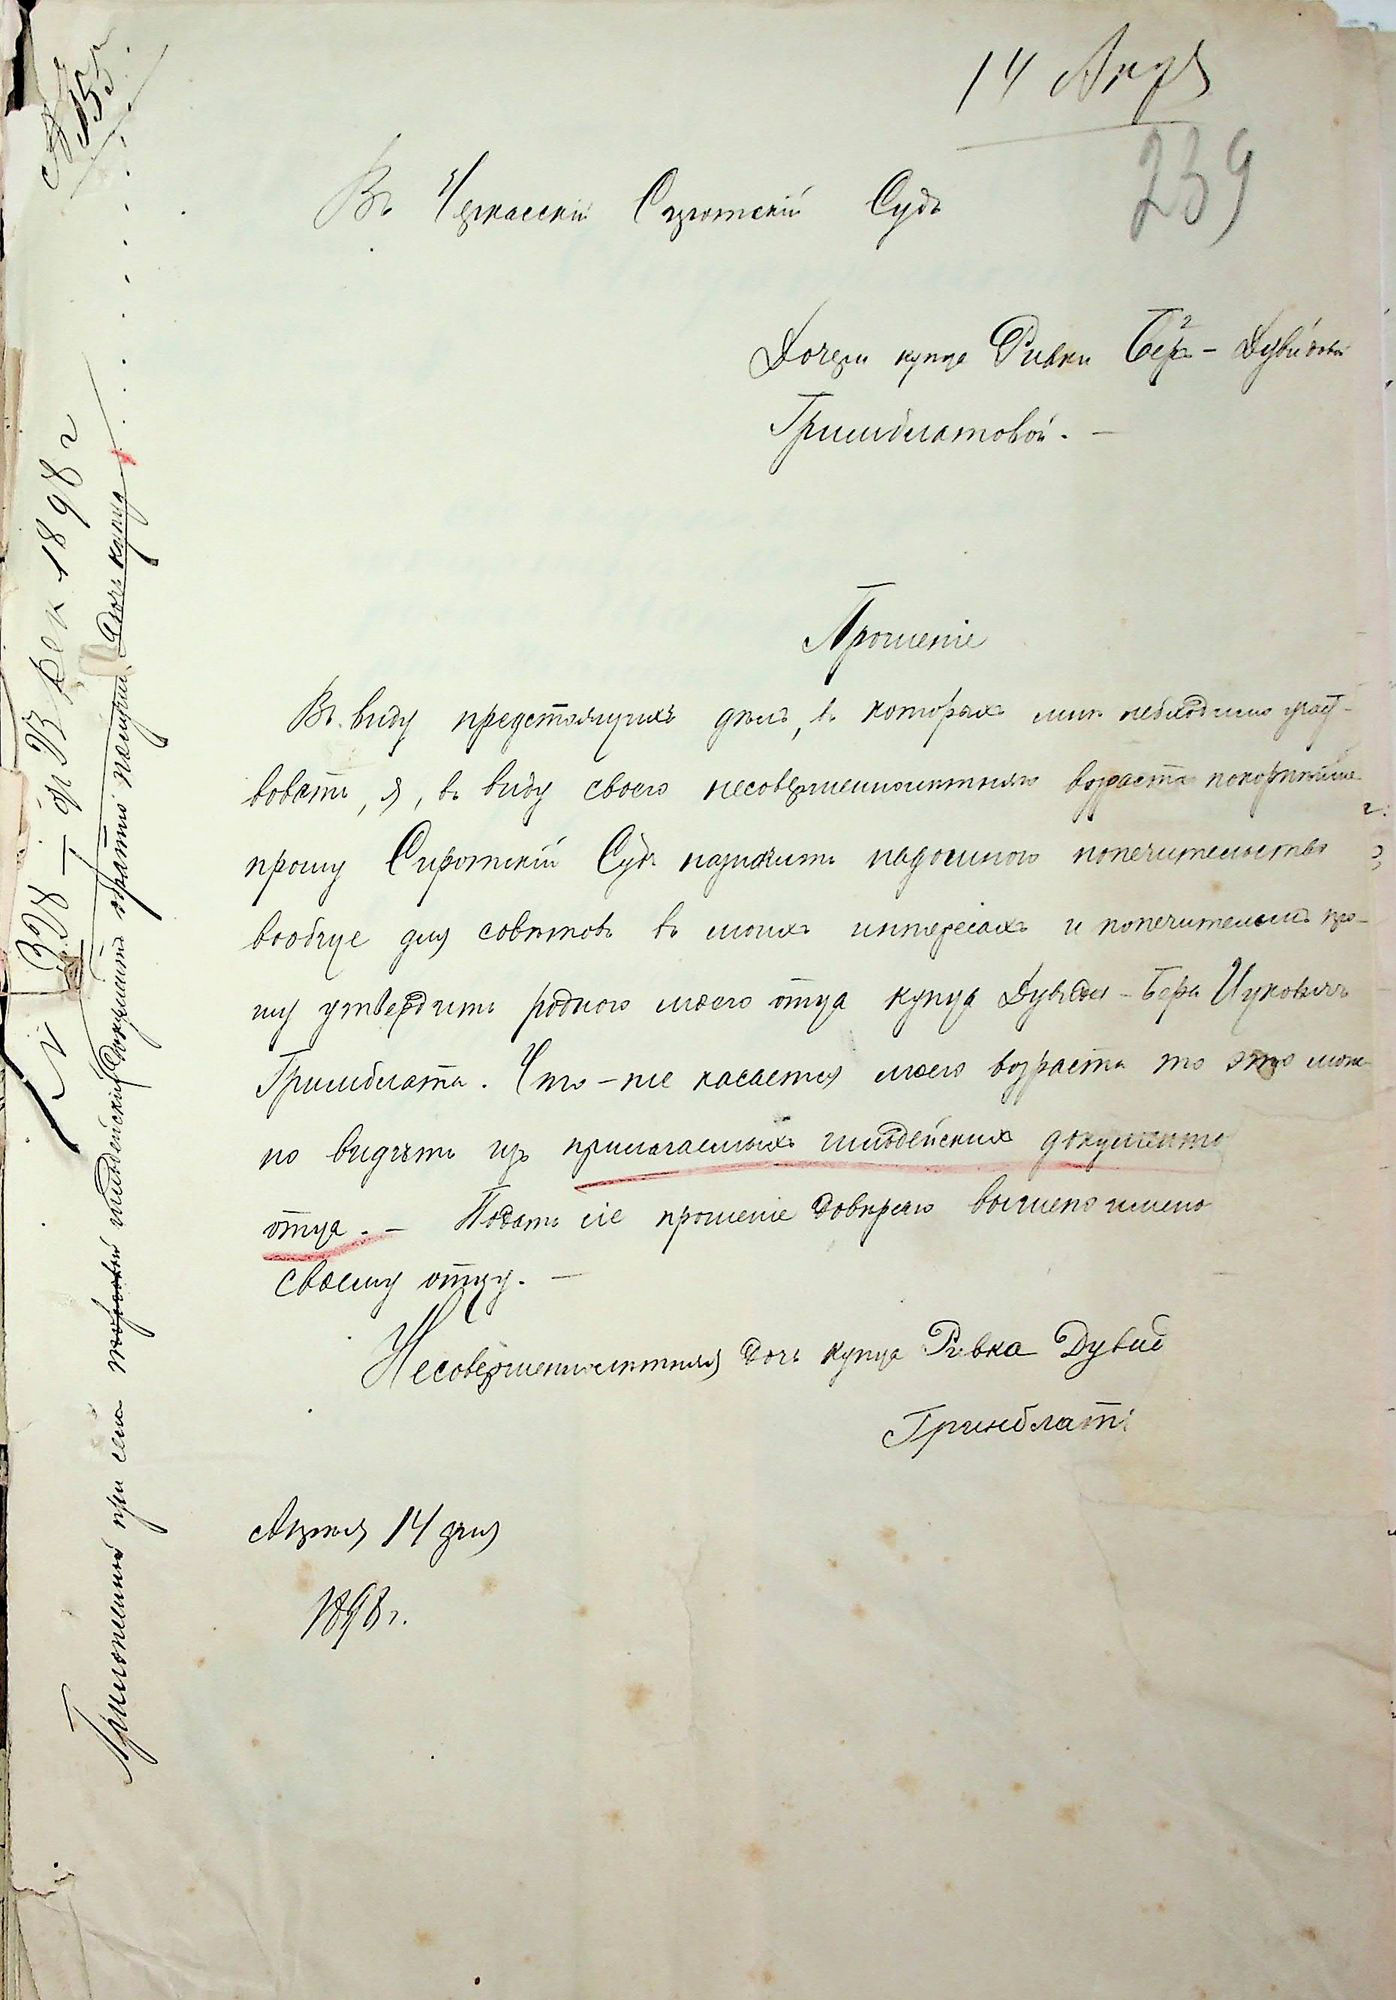 14 Апр
239
Въ Черкасскій Сиротскій Судъ
Дочери купца Ривки Бер - Дувидовой
Гринблатовой. —
Прошеніе
Въ виду предстоящихъ делъ, въ которыхъ мнѣ необходимо участ-
вовать, я, въ виду своего несовершеннолѣтняго возраста покорнѣйше
прошу Сиротскій Судъ назначить надо мною попечительство
вообще для совѣтовъ въ моихъ интересахъ и попечителемъ про-
шу утвердить родного моего отца купца Дувида - Бера Ицковича
Гринблата. Что-же касается моего возраста то это мож-
но видѣть изъ прилагаемыхъ гильдейскихъ документовъ
отца. — Подать сіе прошеніе довѣряю вышепоимено
своему отцу. —
Несовершеннолѣтняя дочь купца Ривка Дувид
Гринблатъ
Апрѣля 14 дня
1898 г.
№ 155
№ 328 — 23 1898 г
Приложенный при семъ гильдейскій документъ обратно получилъ дочь купца